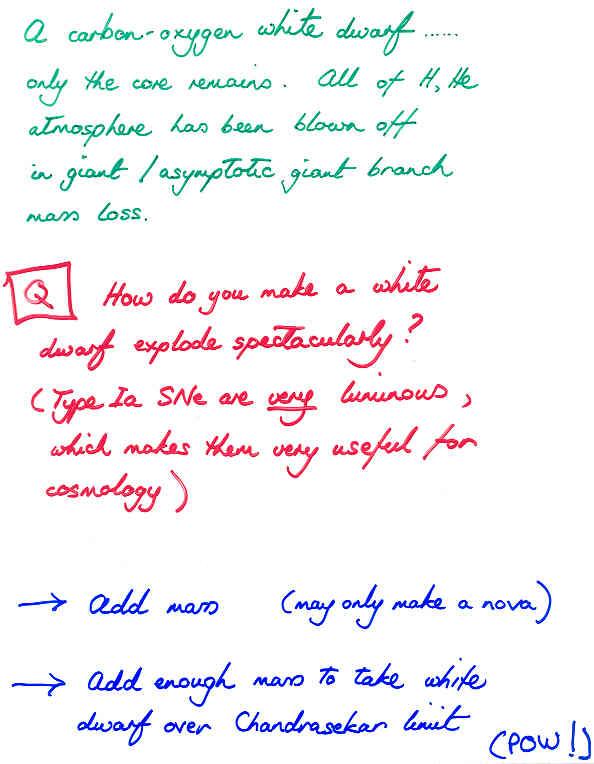 A carbon-oxygen white dwarf ......
only the core remains. All of H, He
atmosphere has been blown off
in giant / asymptotic giant branch
mass loss.
Q How do you make a white
dwarf explode spectacularly?
(Type Ia SNe are very luminous,
which makes them very useful for
cosmology)
→ Add mass (may only make a nova)
→ Add enough mass to take white
dwarf over Chandrasekar limit
(POW!)